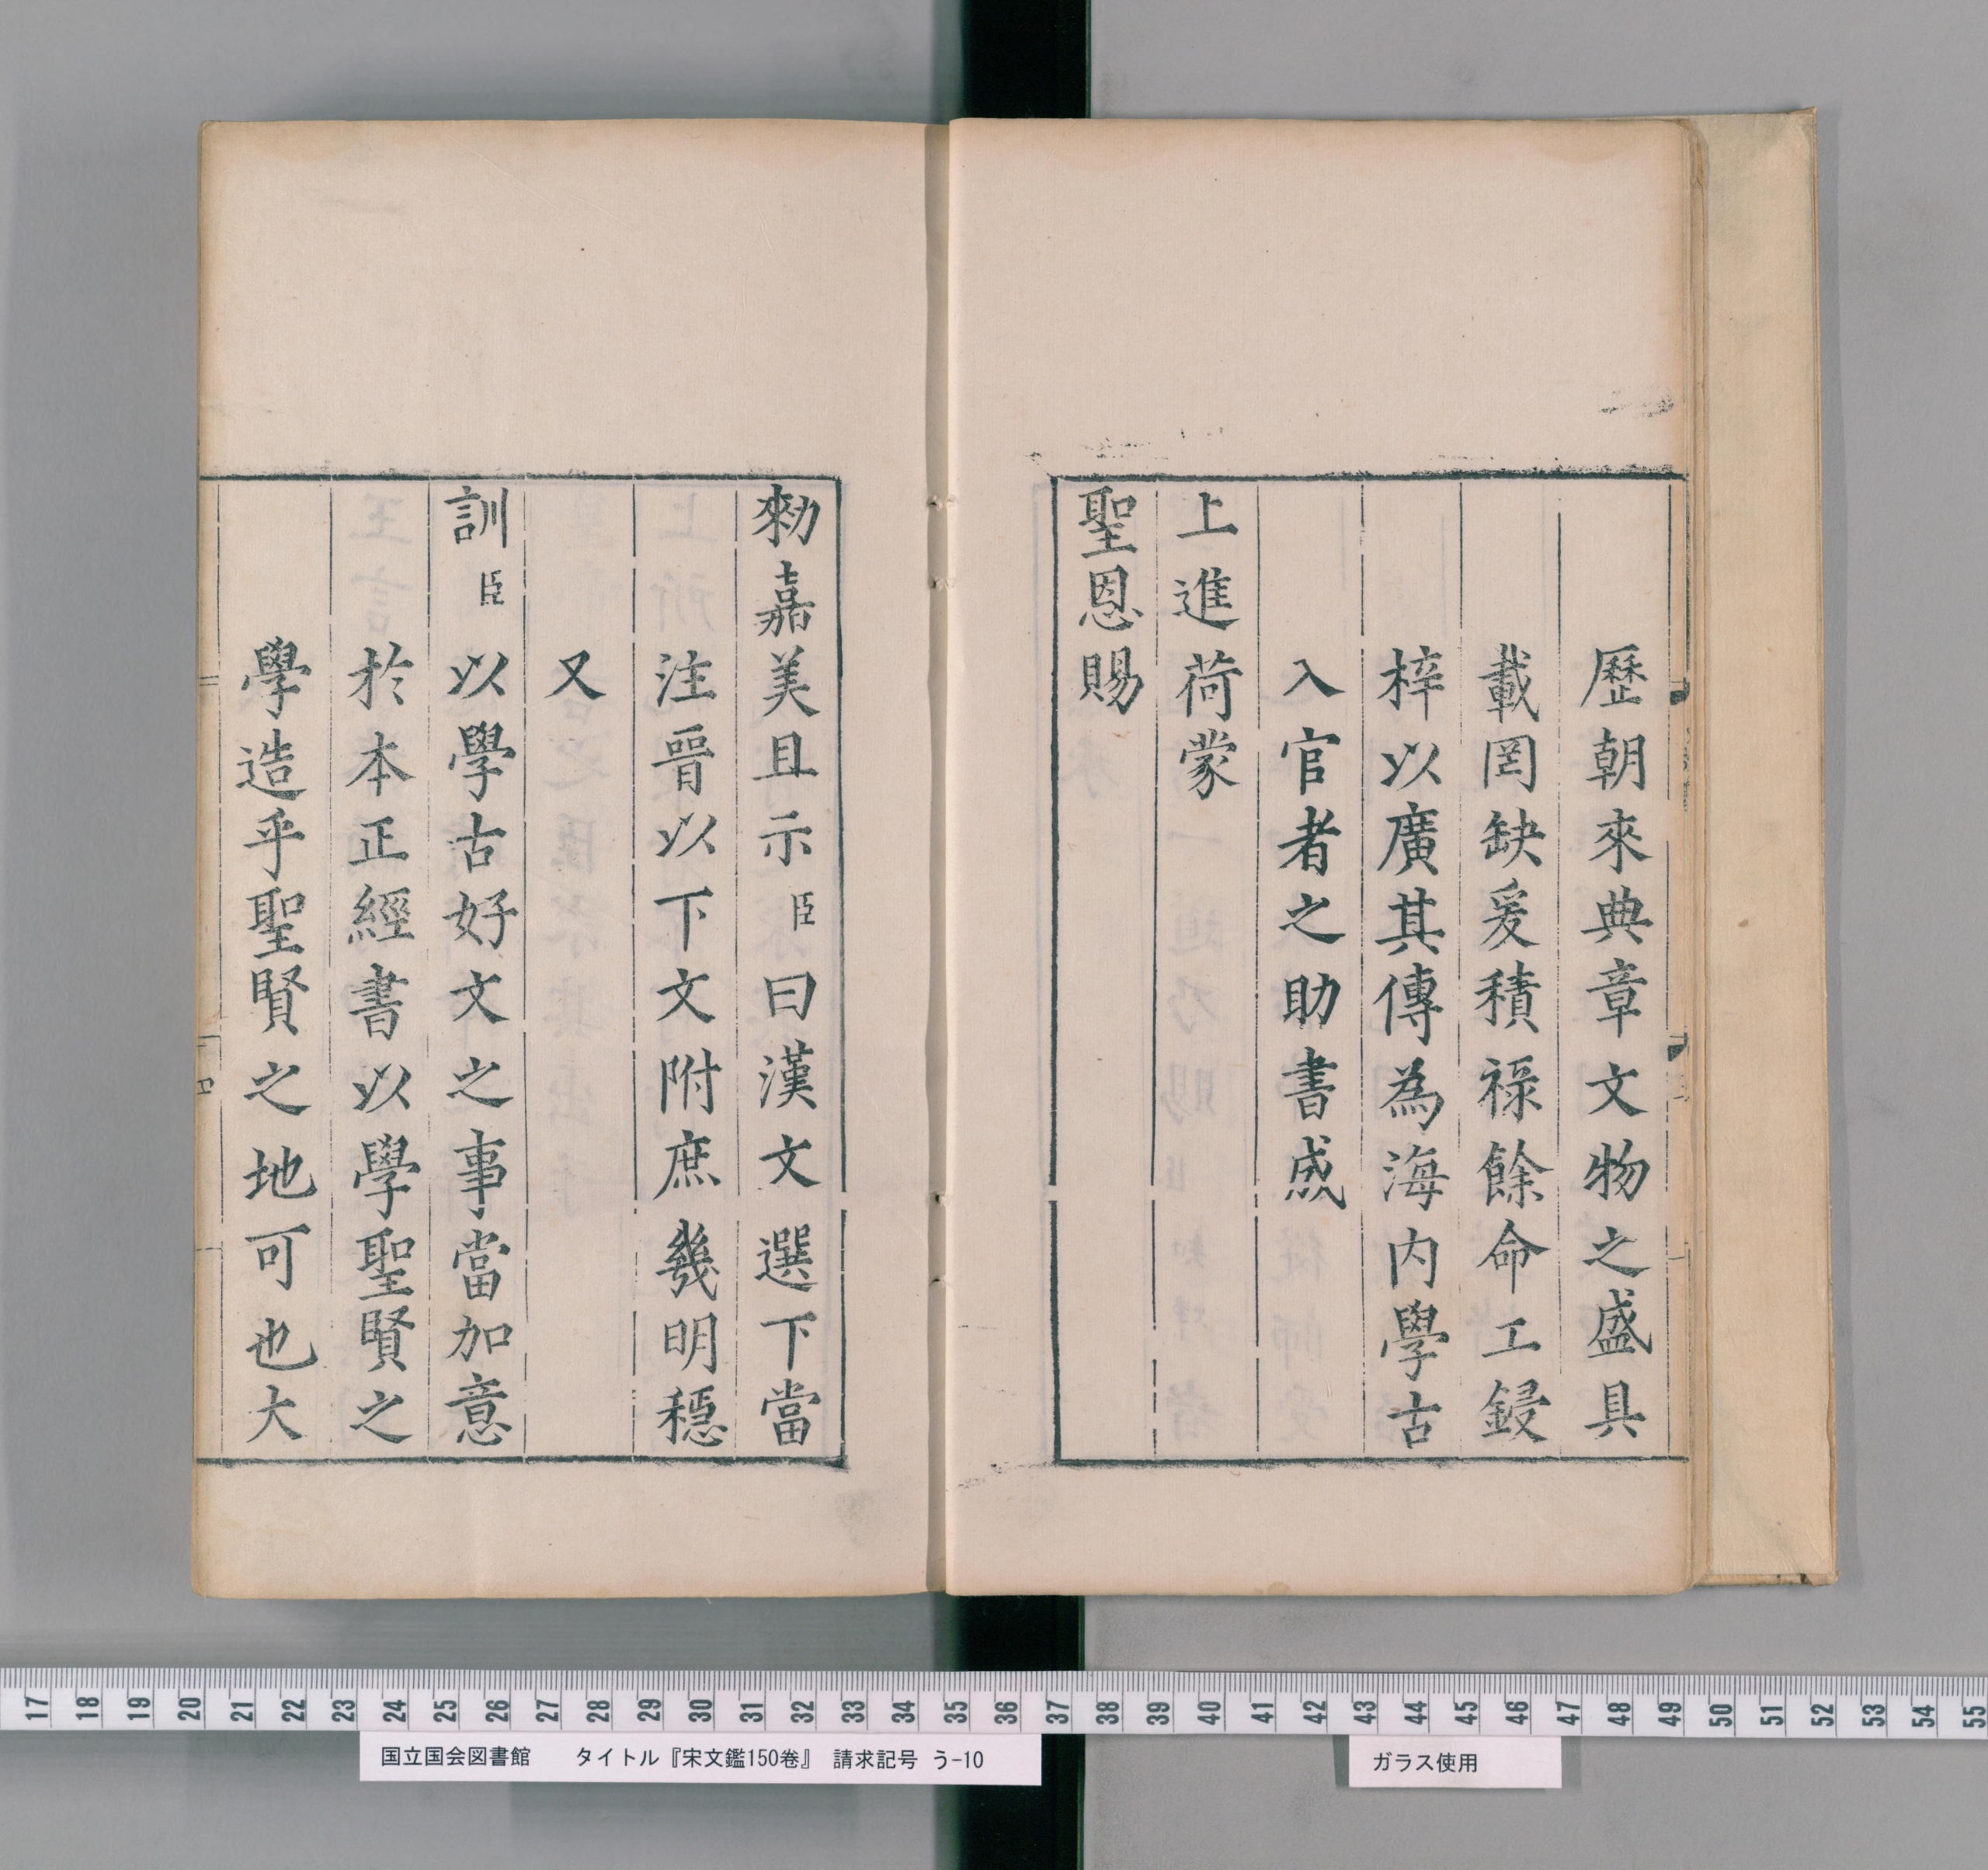 歷朝來典章文物之盛具
載罔缺爰積祿餘命工鋟
梓以廣其傳為海内學古
入官者之助書成
上進荷蒙
聖恩賜
勑嘉美且示臣曰漢文選下當
注晉以下文附庶幾明穏
又
訓臣以學古好文之事當加意
於本正經書以學聖賢之
學造乎聖賢之地可也大
17 18 19 20 21 22 23 24 25 26 27 28 29 30 31 32 33 34 35 36 37 38 39 40 41 42 43 44 45 46 47 48 49 50 51 52 53 54 55
国立国会図書館 タイトル『宋文鑑150巻』 請求記号 う-10
ガラス使用